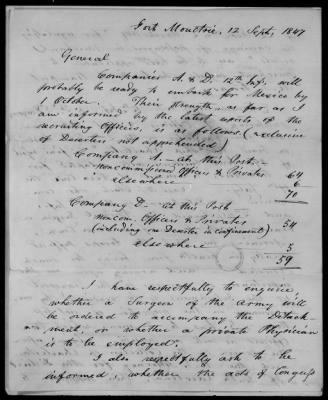 Fort Moultrie, 12 Sept, 1847
General
Companies A. & D. 12th Inf. will
probably be ready to embark for Mexico by
1 October. Their strength, as far as I
am informed by the latest reports of the
recruiting Officers, is as follows, (exclusive
of Deserters not apprehended)
Company A. - at this Post. -
noncommissioned Officers & Privates 64
elsewhere 6
70
Company D. - at this Post
noncom. Officers & Privates 54
(including one Deserter in confinement)
elsewhere 5
59
I have respectfully to enquire,
whether a Surgeon of the army will
be ordered to accompany the Detach-
ment, or whether a private Physician
is to be employed.
I also respectfully ask to be
informed, whether the acts of Congress